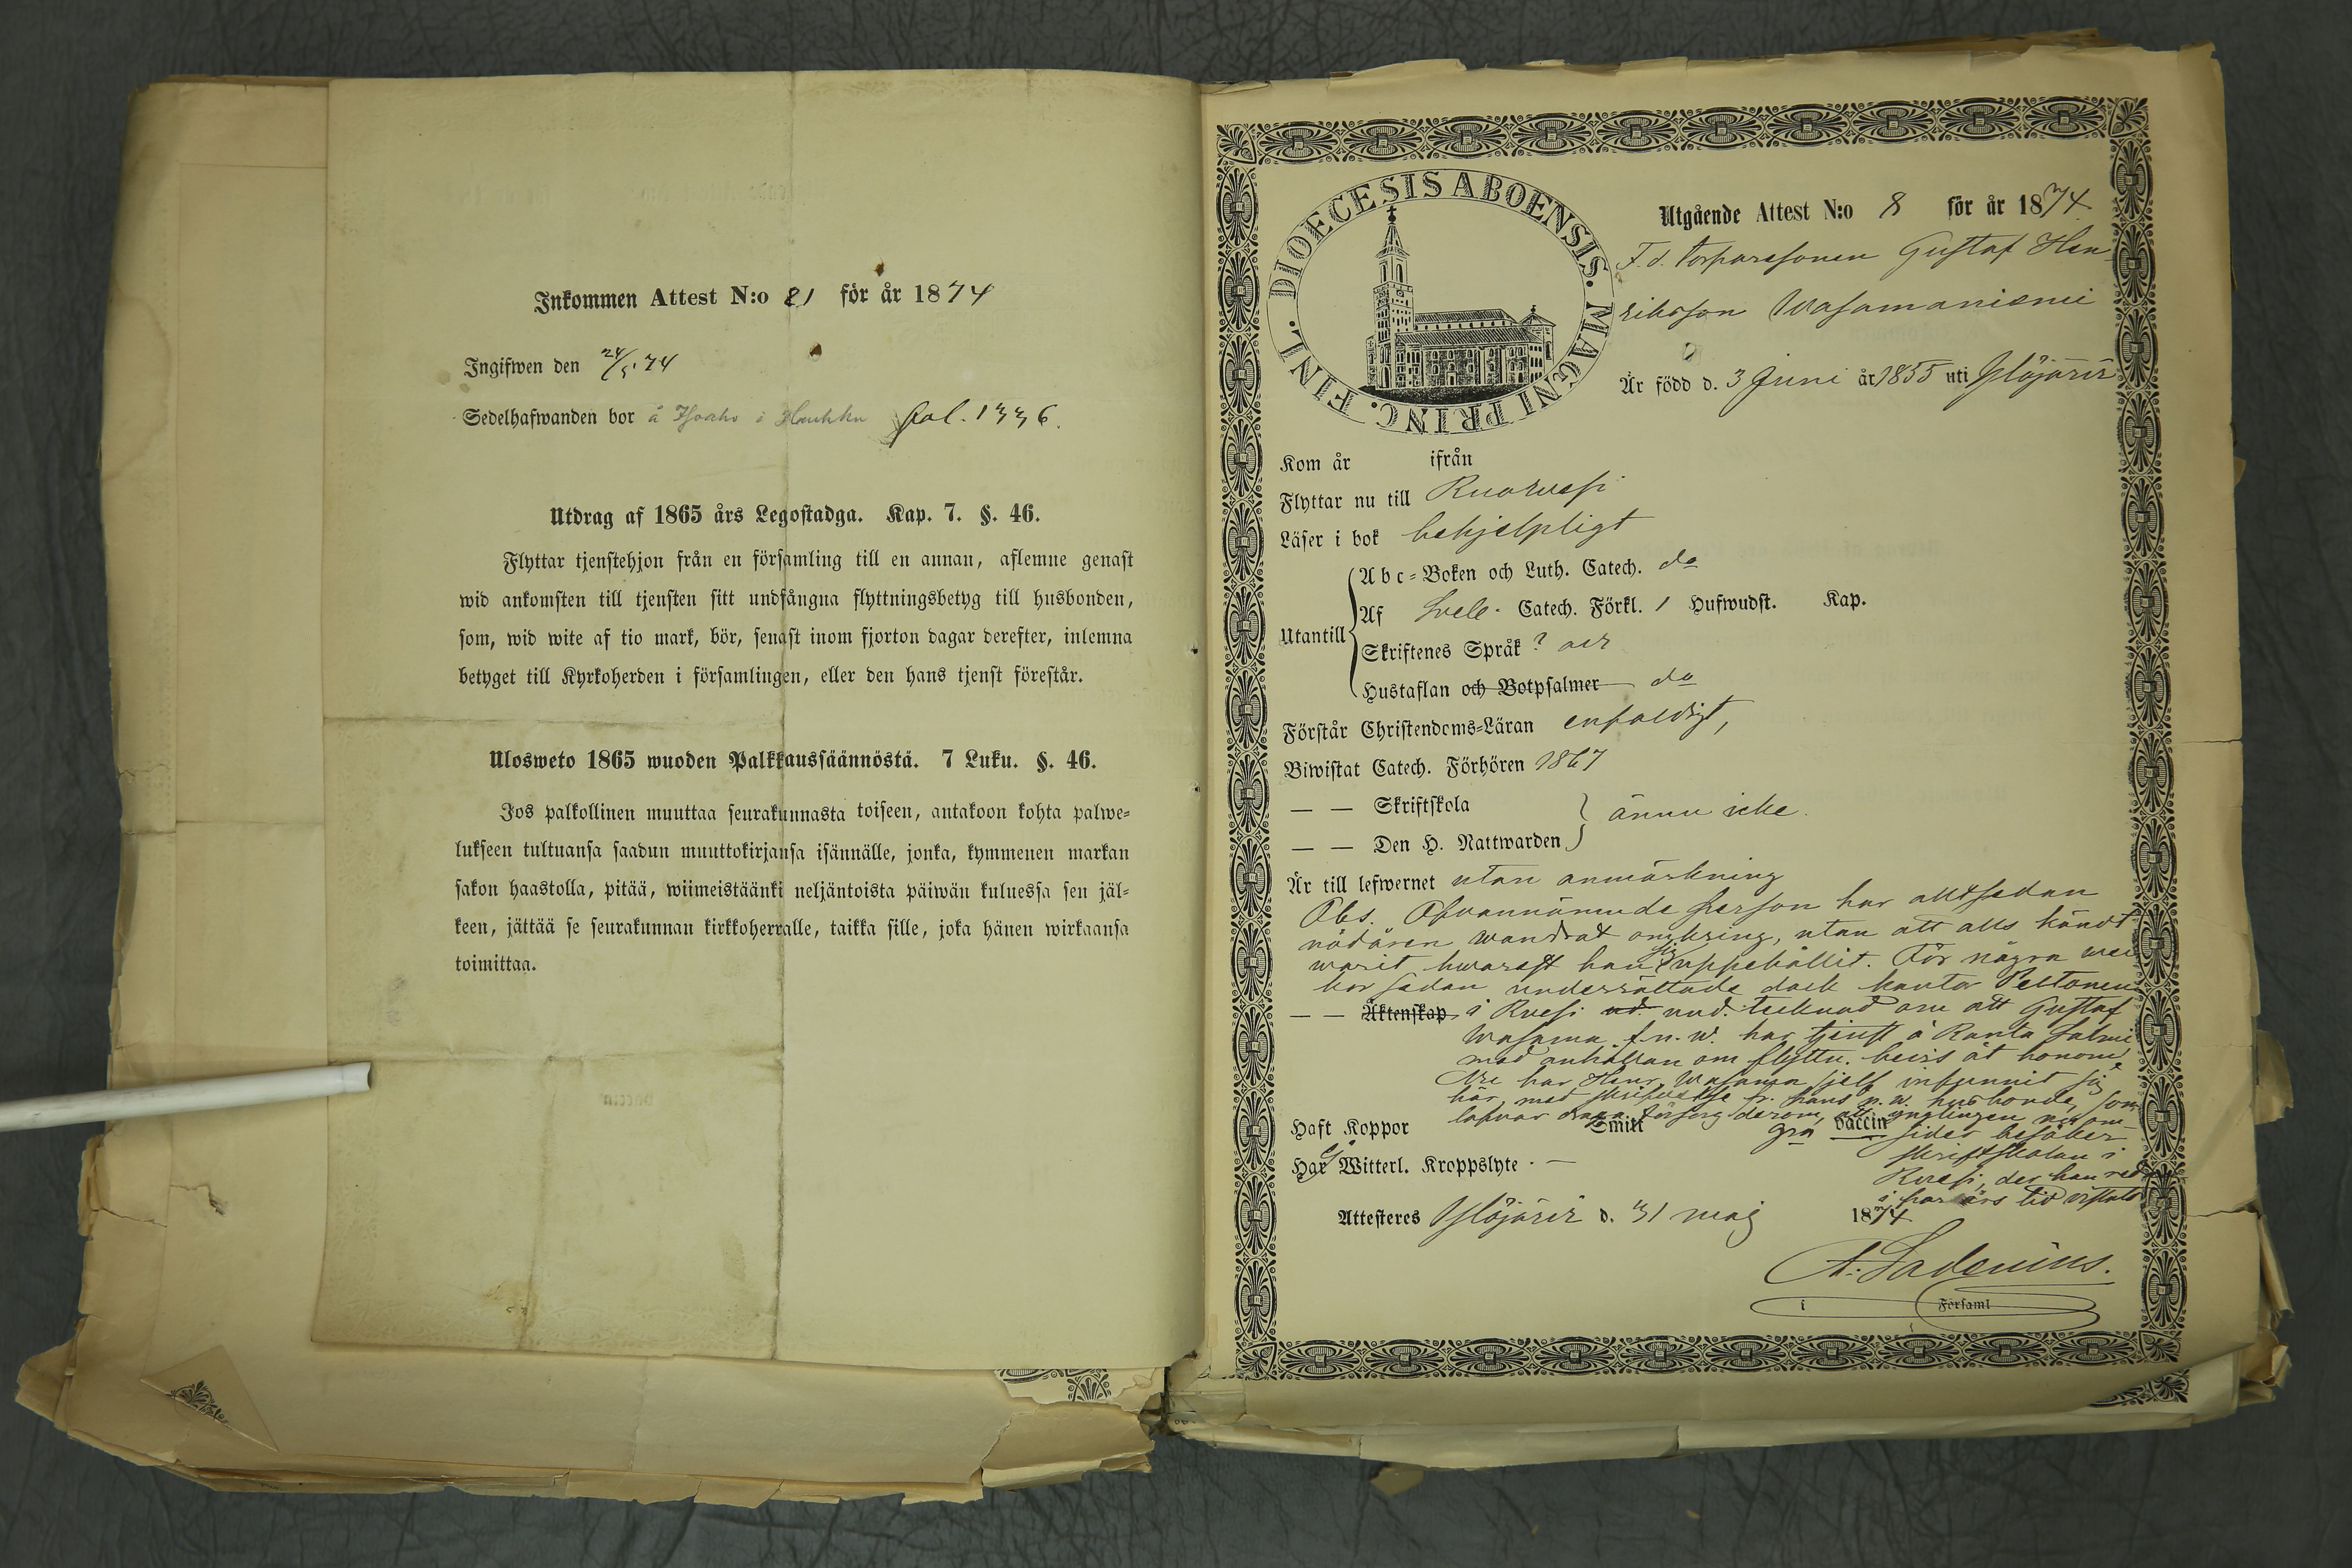 Inkommen Attest N:o 21 för år 1874
Ingifwen den 24/5 74
Sedelhafwanden bor å i Haukka fol. 1336.
Utdrag af 1865 års Legostadga. Kap. 7. §. 46.
Flyttar tjenstehjon från en församling till en annan, aflemne genast
wid ankomsten till tjensten sitt undfångna flyttningsbetyg till husbonden,
som, wid wite af tio mark, bör, senast inom fjorton dagar derefter, inlemna
betyget till Kyrkoherden i församlingen, eller den hans tjenst förestår.
Ulosweto 1865 wuoden Palkkaussäännöstä. 7 Luku. §. 46.
Jos palkollinen muuttaa seurakunnasta toiseen, antakoon kohta palwe-
lukseen tultuansa saadun muuttokirjansa isännälle, jonka, kymmenen markan
sakon haastolla, pitää, wiimeistäänki neljäntoista päiwän kuluessa sen jäl-
keen, jättää se seurakunnan kirkkoherralle, taikka sille, joka hänen wirkaansa
toimittaa.
DIOECESIS ABOENSIS. MAGNI PRINC. FINL.
Utgående Attest N:o 8 för år 1874.
F. d. torparesonen Gustaf Hen-
riksson Wasamaniemi
Är född d. 3 Juni år 1855 uti Ylöjärvi
Kom år ifrån
Flyttar nu till Ruovesi
Läser i bok behjelpligt
Utantill
Abc-Boken och Luth. Catech. do
Af Svebe. Catech. Förkl. 1 Hufwudst. Kap.
Skriftenes Språk ?
Hustaflan och Botpsalmer do
Förstår Christendoms-Läran enfaldigt,
Biwistat Catech. Förhören 1867
— — Skriftskola
ännu icke.
— — Den H. Nattwarden
Är till lefwernet utan anmärkning
Obs. Ofvannämnde person har alltsedan
nödåren wandrat omkring, utan att alls kändt
warit hwarest han sig uppehållit. För några
har sedan underrättade dock kantor Peltonen
— — Äktenskap i Rvesi und. tecknad om att Gustaf
Wasama f. n. w. har tjenst å Ranta Salmi
med anhållan om flyttn. bevis åt honom.
Nu har Henr. Wasama sjelf infunnit sig
här med fr. hans n. w. husbonde, som
lofvar draga försorg derom, att ynglingen
Haft Koppor Smitt gm vaccin sider besöker
skriftskolan i
Har Witterl. Kroppslyte. —
Rvesi, der han red
i par års tid vistats
Attesteres Ylöjärvi d. 31 maj 1874
A. Ladenius.
i Församl